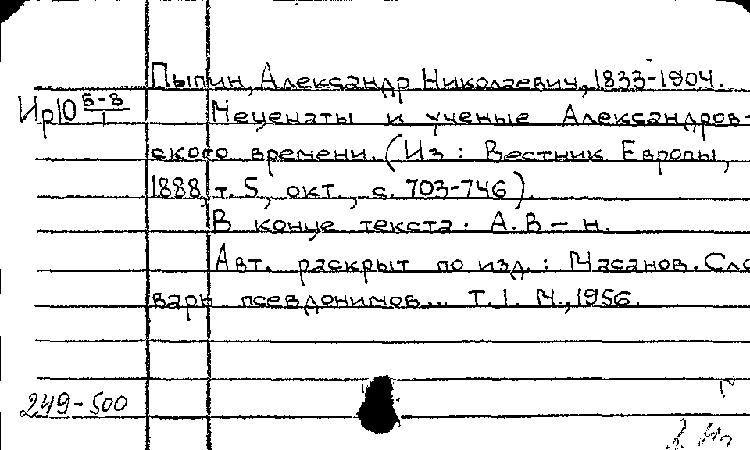 Пыпин, Александр Николаевич, 1833-1904.
Ир10 Б-В
1
Меценаты и ученые Александров-
ского времени. (Из: Вестник Европы,
1888, т. 5, окт., с. 703-746).
В конце текста: А. В-н.
Авт. раскрыт по изд.: Масанов. Сло
варь псевдонимов... Т. 1. М., 1956.
249-500